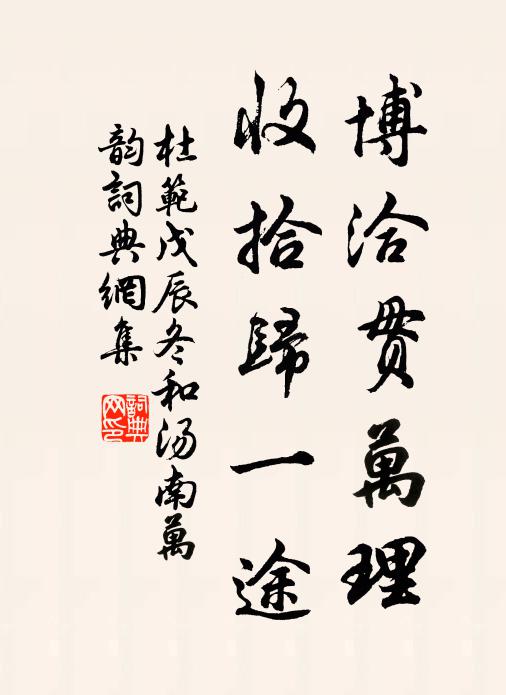 博洽贯萬理
收拾歸一途
杜範戊辰冬和汤南萬
韵詞典網集
詞典网印